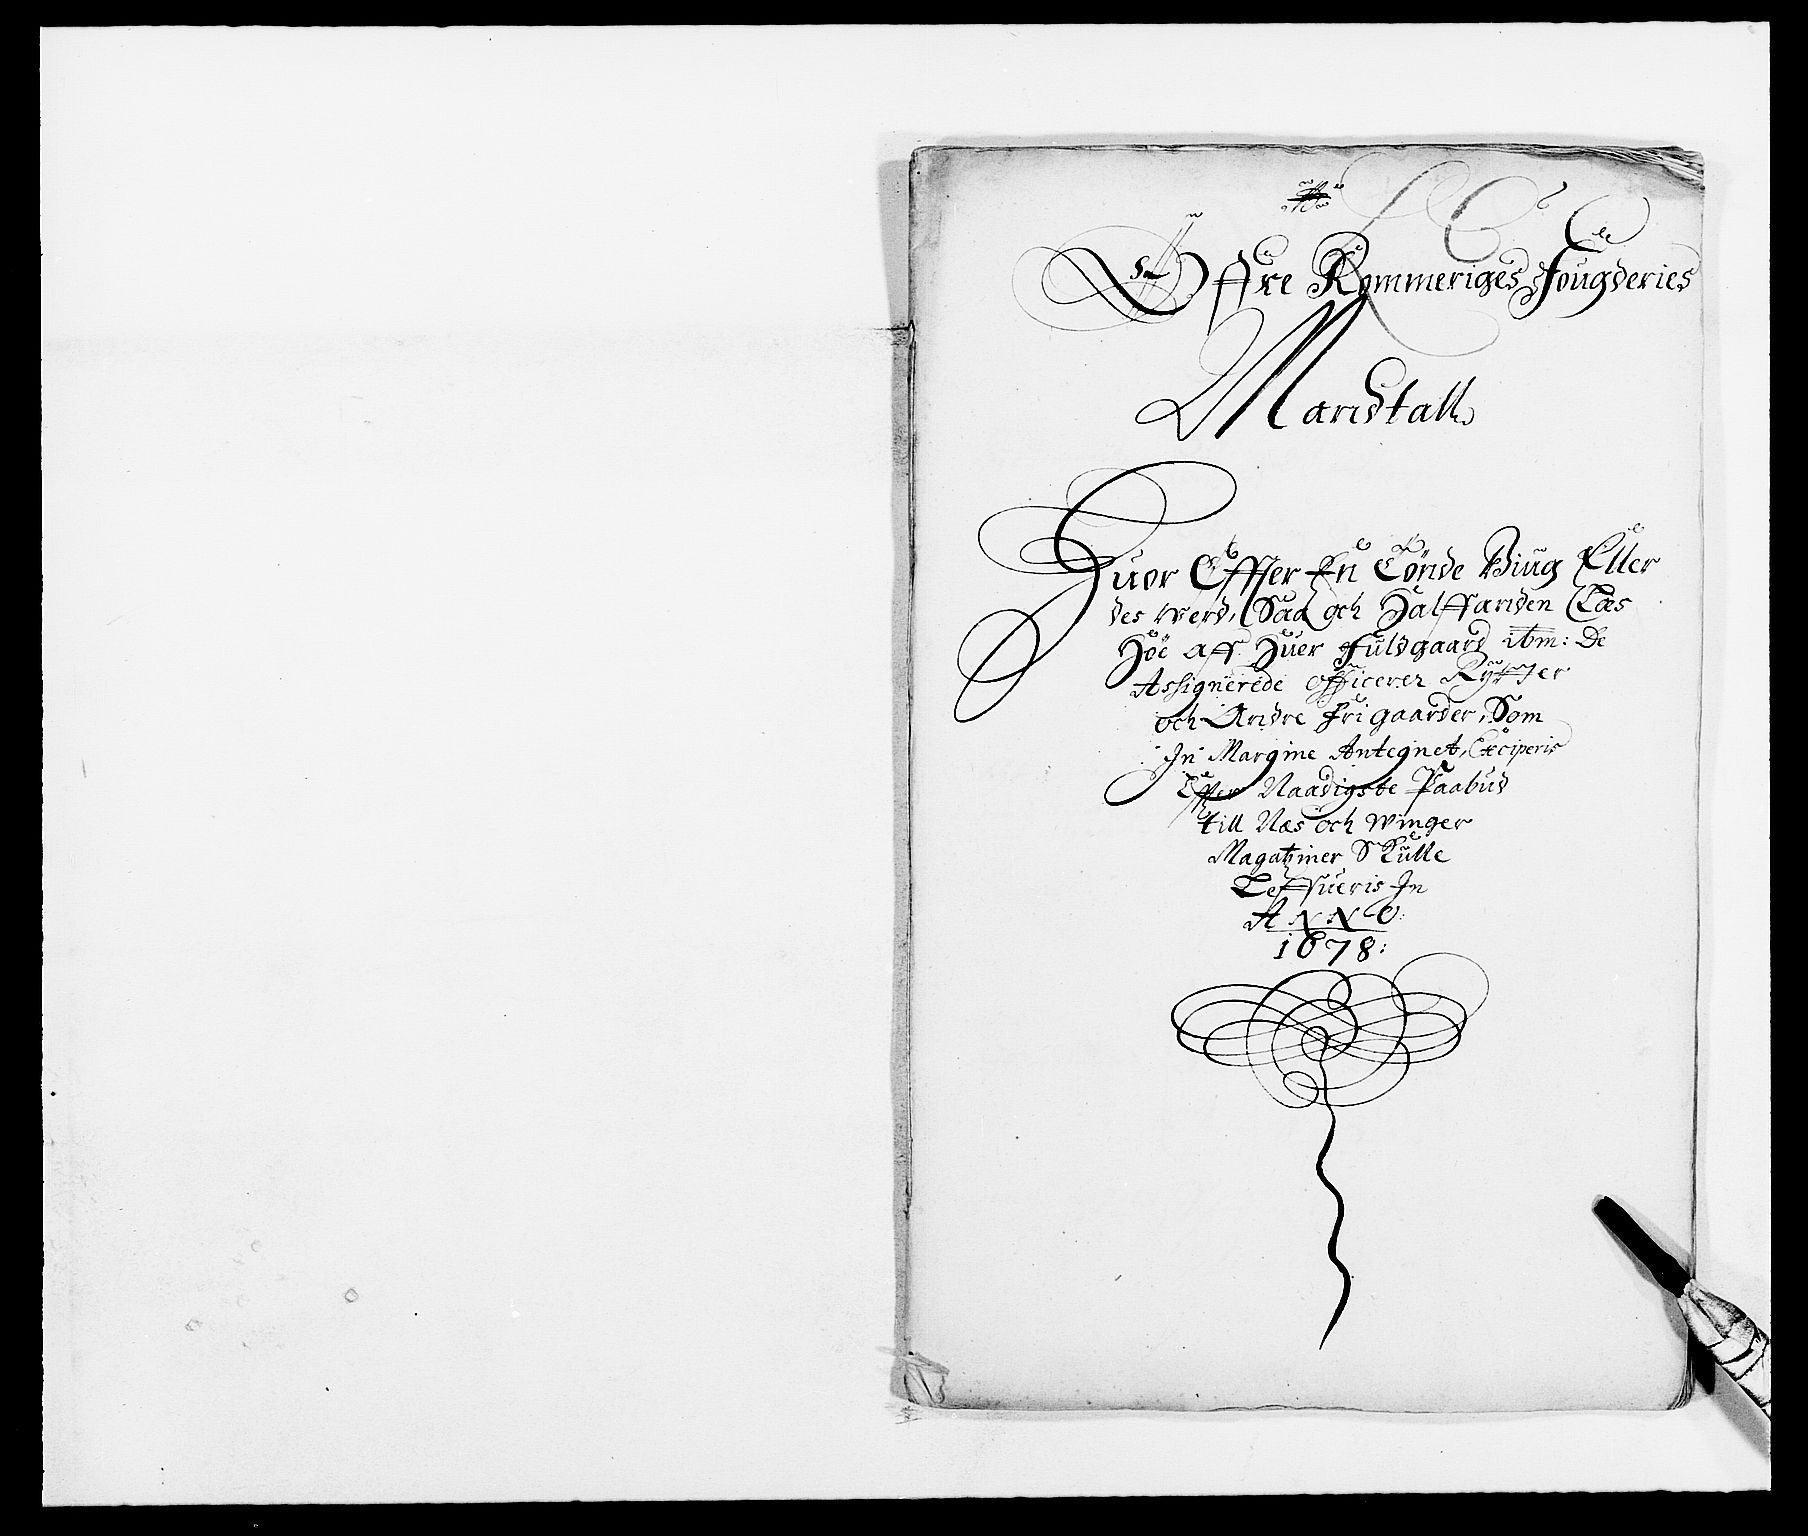 Øffre Rommeriges Fougderies
Mandtall
Huor Effter En Tønde Biug Eller
des werd, Saa och Halffanden Læs
Høe aff Huer Fuldgaard item: De
Assignerede officerer Rÿtter
och Andre Frigaarder, Som
In Margine Antegnet, Exciperis
Effter Naadigste Paabud
till Næs och Winger
Magatziner Skulle
Leffueris In
ANNO:
1678: